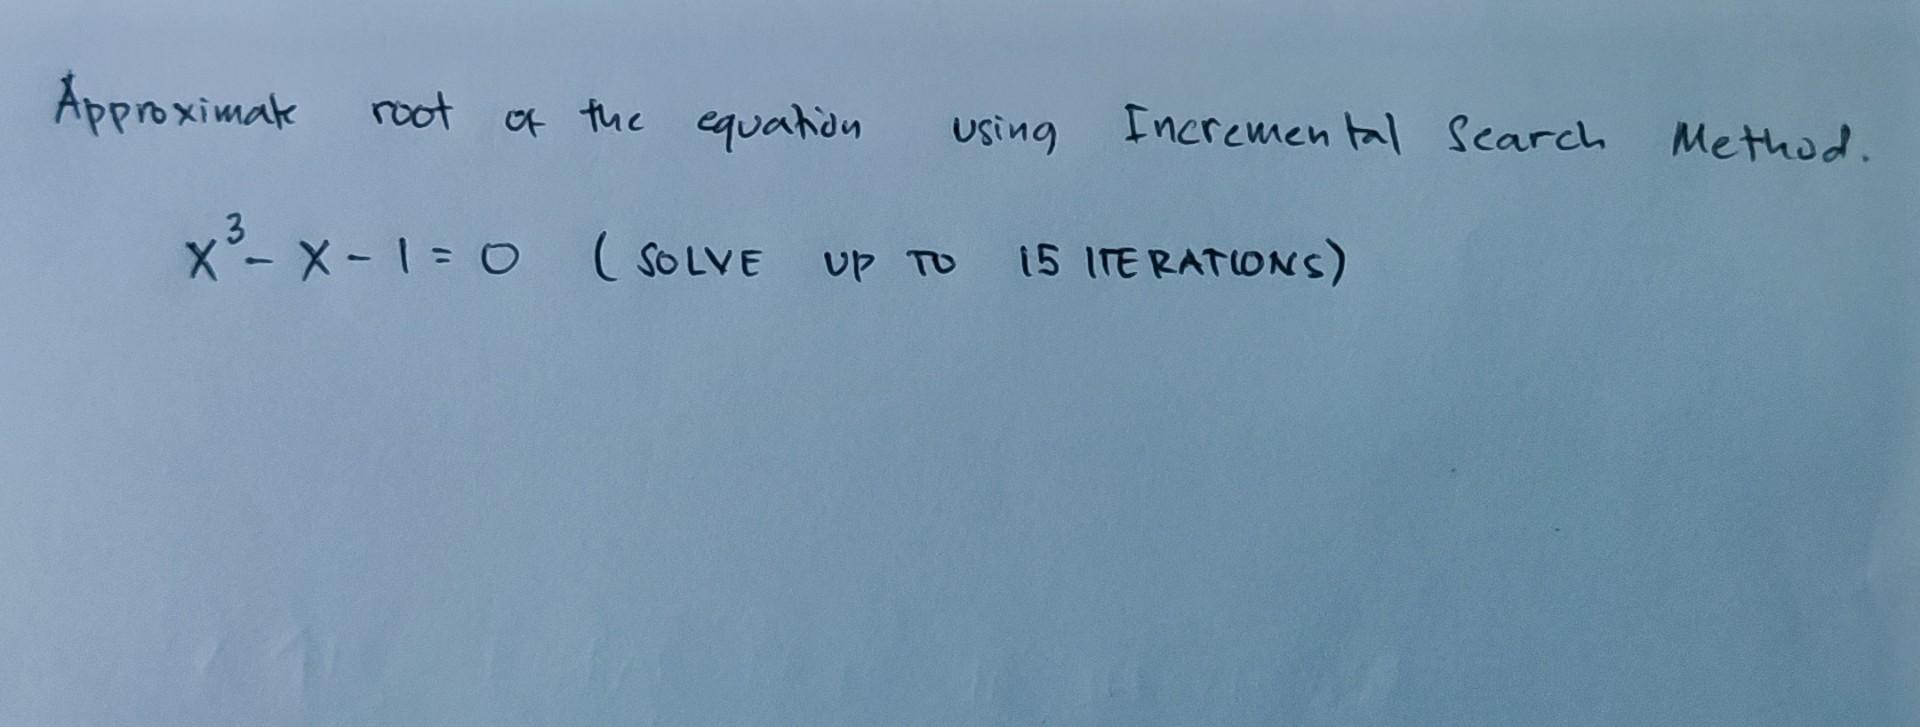 Approximate root of the equation using Incremental Search Method.
x³ - x - 1 = 0 (SOLVE UP TO 15 ITERATIONS)